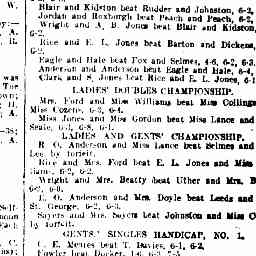 Blair and Kidston beat Rudder and Johnston, 6-2,
Jordan and Roxburgh beat Peach and Peach, 6-2,
Wright and A. B. Jones beat Blair and Kidston,
6-2.
Rice and E. L. Jones beat Barton and Dickens,
6-2.
Eagle and Hale beat Fox and Selmes, 4-6, 6-2, 6-3.
Anderson and Anderson beat Eagle and Hale, 6-4,
Clark and S. Jones beat Rice and E. L. Jones, 6-1
LADIES' DOUBLES CHAMPIONSHIP.
Mrs. Ford and Miss Williams beat Miss Collings
Miss Cozens, 6-2, 6-4.
Miss Jones and Miss Gordon beat Miss Lance and
Seale, 6-8, 6-1.
LADIES AND GENTS' CHAMPIONSHIP.
R. O. Anderson and Miss Lance beat Selmes and
Lee by forfeit.
Rice and Mrs. Ford beat E. L. Jones and Miss
6-2, 6-2.
Wright and Mrs. Beatty beat Uther and Mrs. B
6-2, 6-0.
E. O. Anderson and Mrs. Doyle beat Leeds and
St. George, 6-2, 6-3.
Sayers and Mrs. Sayers beat Johnston and Miss O
by forfeit.
GENTS' SINGLES HANDICAP, NO. 1.
C. E. Mettes beat T. Davies, 6-1, 6-2,
Fowler beat Docker, 1-6, 6-3, 7-5